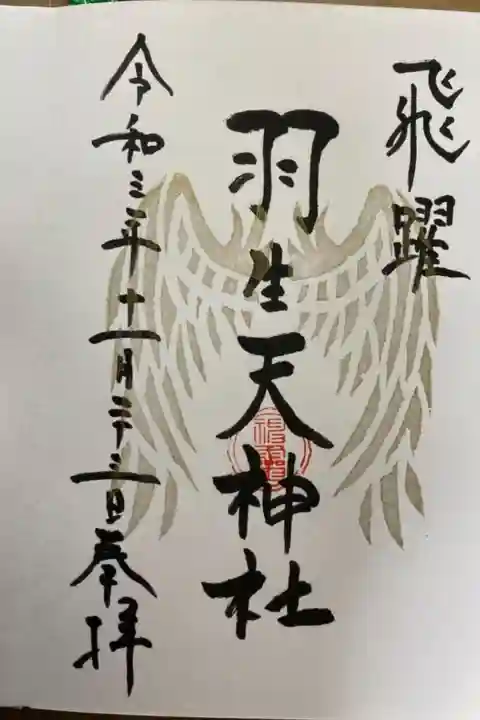 飛躍
羽生天神社
令和三年十一月二十三日奉拝